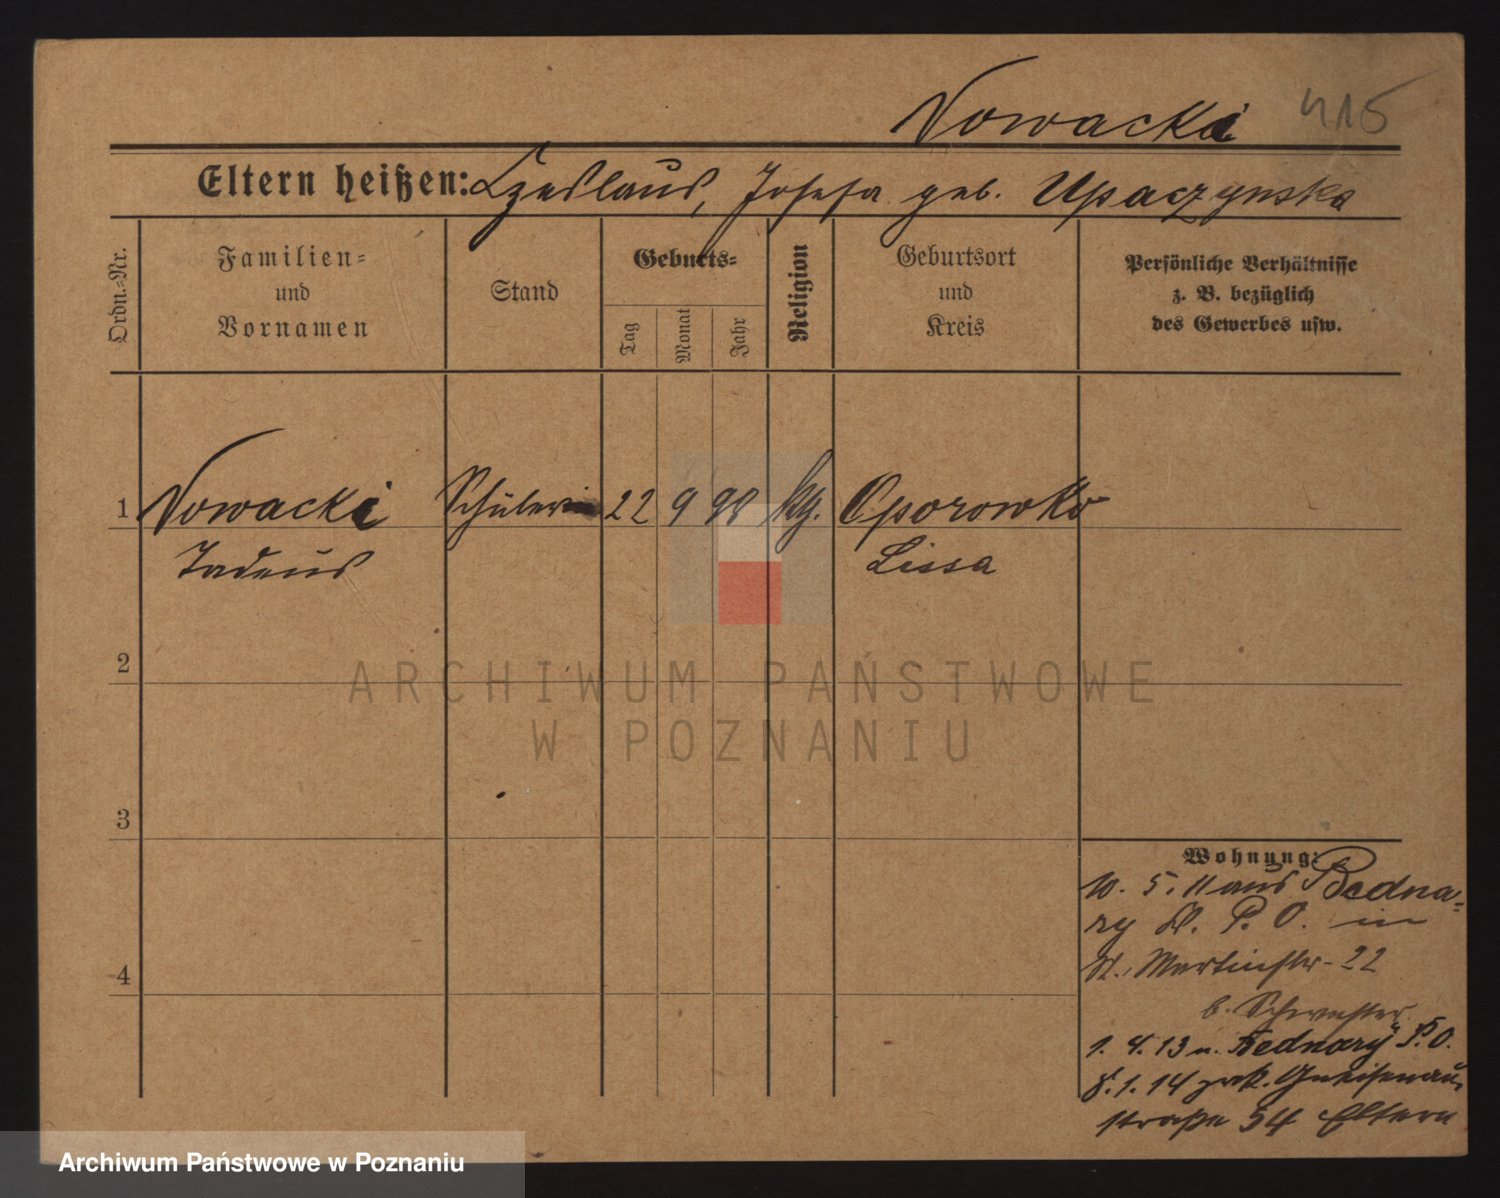 Nowacki 415
Eltern heißen: Czeslaus, Josefa geb. Upaczynska
Ordn.=Nr.
Familien=
und
Vornamen
Stand
Geburts=
Tag
Monat
Jahr
Religion
Geburtsort
und
Kreis
Persönliche Verhältnisse
z. B. bezüglich
des Gewerbes usw.
1 Nowacki Schüler 22 9 98 kg. Oporowko
Tadeus Lissa
2
ARCHIWUM PAŃSTWOWE
W POZNANIU
3
Wohnung:
10. 5. 11 aus Bedna=
ry P. O. in
St. Martinstr. 22
4
b. Schwester
1. 4. 13 n. Bednary P. O.
8. 1. 14 zrk. Gneisenau
straße 54 Eltern
Archiwum Państwowe w Poznaniu